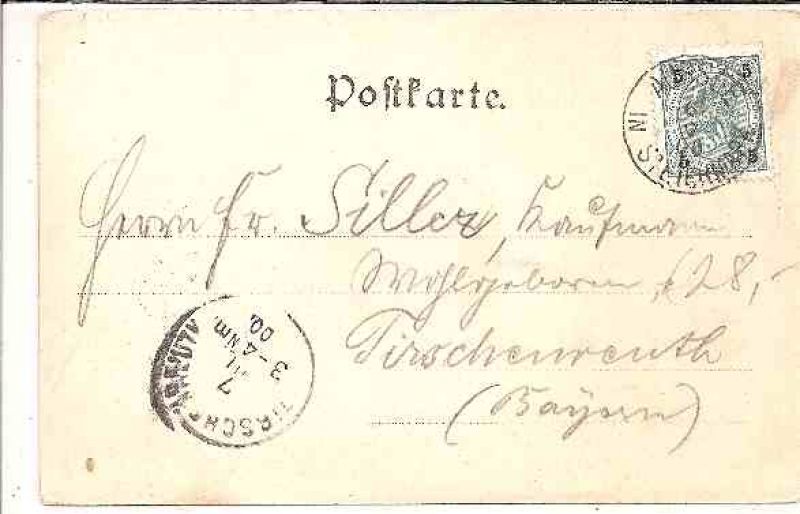 Postkarte.
5 5
5 5
IN STEIERMARK
Herrn Fr. Siller, Kaufmann
Wohlgeboren
Tirschenreuth
(Bayern)
TIRSCHENREUTH
7
3-4 NM.
00.